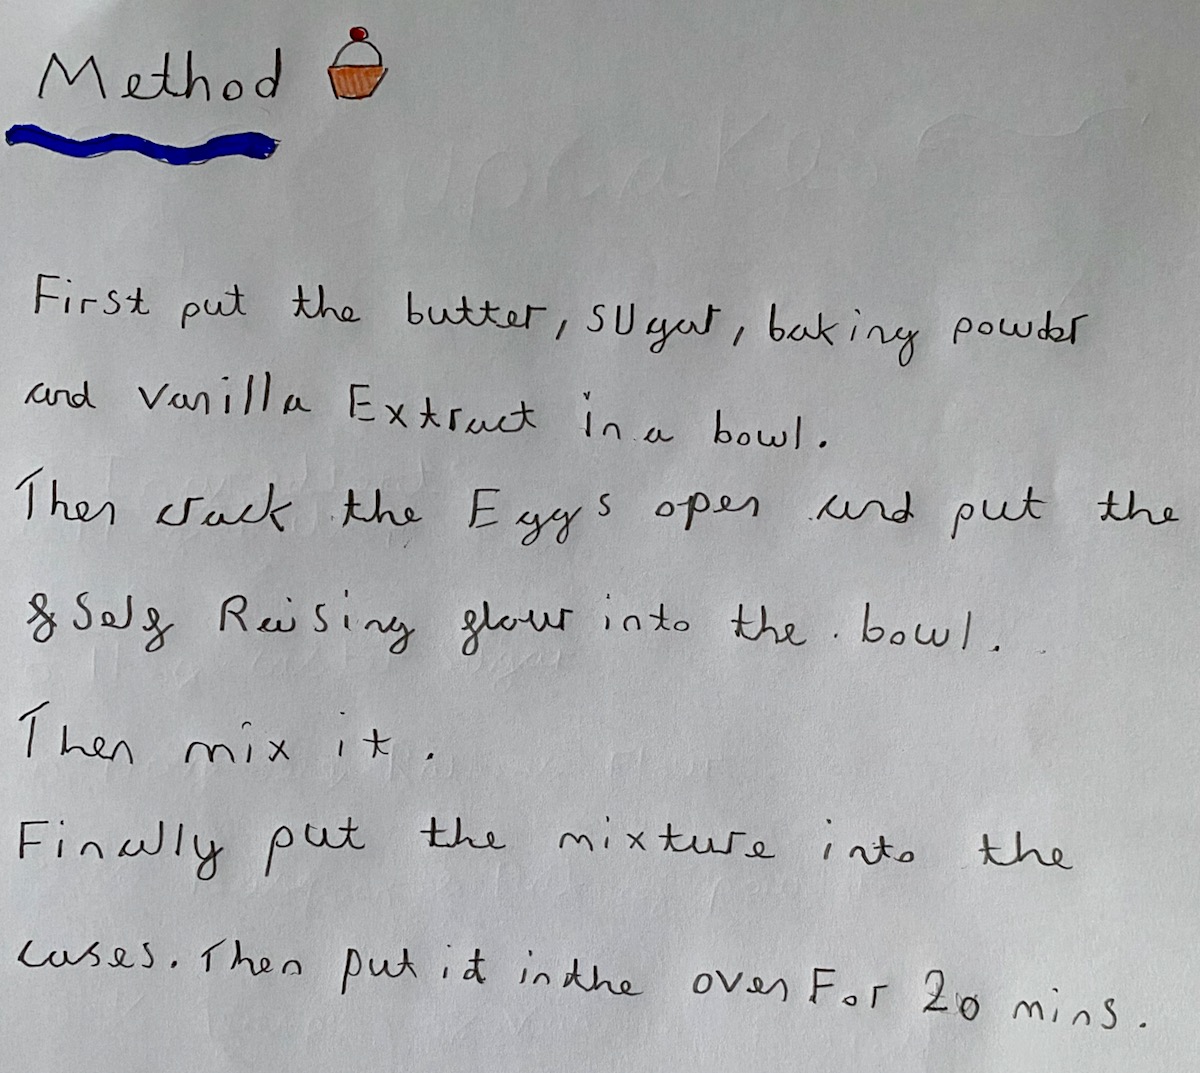 Method
First put the butter, sugar, baking powder
and vanilla Extract in a bowl.
Then crack the Eggs open and put the
& Self Raising flour into the bowl.
Then mix it.
Finally put the mixture into the
cases. Then put it in the oven For 20 mins.